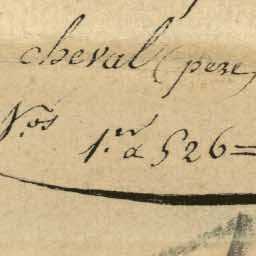 cheval (pere)
N.os 1.er a 526=